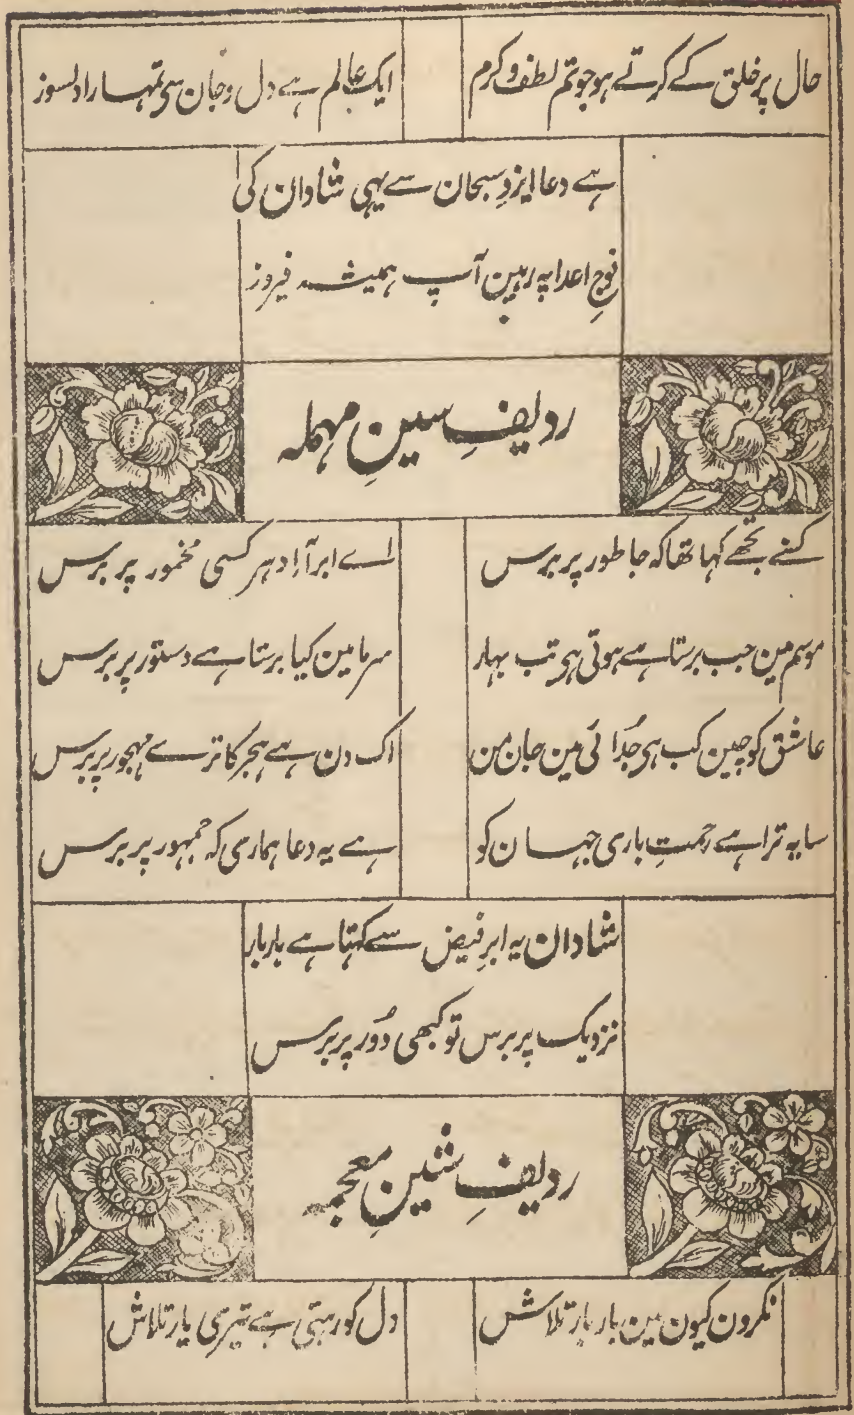 حال پر خلق کے کرتے ہو جو تم لطف و کرم
ایک عالم ہے دل و جان سی تمہارا دلسوز
ہے دعا ایزدِ سبحان سے یہی شادان کی
فوجِ اعدا پہ رہین آپ ہمیشہ فیروز
ردیفِ سینِ مہملہ
کسنے تجھے کہا تھا کہ جا طور پر برس
اے ابر آ اِدھر کسی مخمور پر برس
موسم مین جب برستا ہے ہوتی ہی تب بہار
سرما مین کیا برستا ہے دستور پر برس
عاشق کو چین کب ہی جُدائی مین جان من
اک دن ہے ہجر کا ترے مہجور پر برس
سایہ ترا ہے رحمتِ باری جہان کو
ہے یہ دعا ہماری کہ جمہور پر برس
شادان یہ ابرِ فیض سے کہتا ہے بار بار
نزدیک پر برس تو کبھی دُور پر برس
ردیفِ شینِ معجمہ
نکرون کیون مین بار بار تلاش
دل کو رہتی ہے تیری یار تلاش